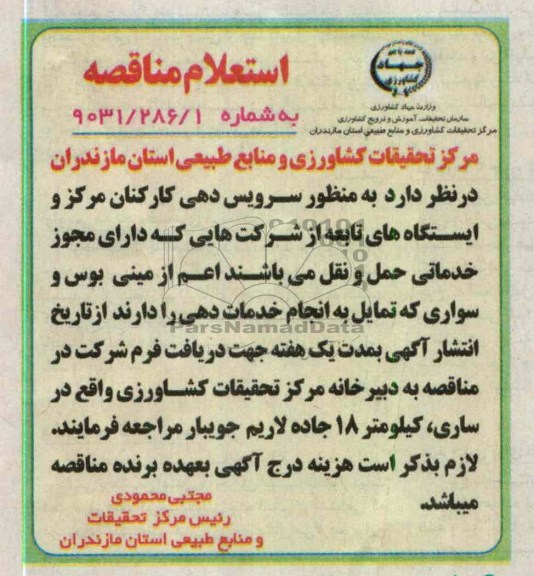 همه با هم
جهاد
کشاورزی
وزارت جهاد کشاورزی
سازمان تحقیقات، آموزش و ترویج کشاورزی
مرکز تحقیقات کشاورزی و منابع طبیعی استان مازندران
استعلام مناقصه
به شماره ۹۰۳۱/۲۸۶/۱
مرکز تحقیقات کشاورزی و منابع طبیعی استان مازندران
درنظر دارد به منظور سرویس دهی کارکنان مرکز و
ایستگاه های تابعه از شرکت هایی که دارای مجوز
خدماتی حمل و نقل می باشند اعم از مینی بوس و
سواری که تمایل به انجام خدمات دهی را دارند ازتاریخ
انتشار آگهی بمدت یک هفته جهت دریافت فرم شرکت در
مناقصه به دبیرخانه مرکز تحقیقات کشاورزی واقع در
ساری، کیلومتر ۱۸ جاده لاریم جویبار مراجعه فرمایند.
لازم بذکر است هزینه درج آگهی بعهده برنده مناقصه
میباشد.
مجتبی محمودی
رئیس مرکز تحقیقات
و منابع طبیعی استان مازندران
ParsNamadData